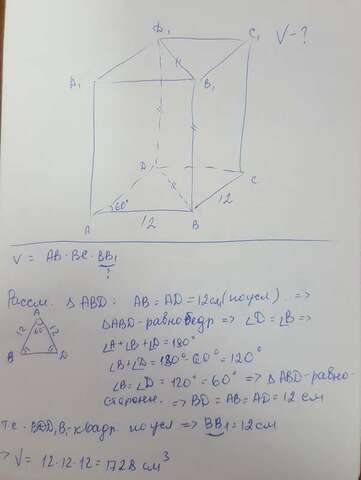 D₁ C₁ V-?
A₁ B₁
D C
60° 12
A 12 B
V = AB · BC · BB₁
?
Рассм. △ ABD: AB = AD = 12см (по усл.) =>
△ABD - равнобедр => ∠D = ∠B =>
A
∠A + ∠B + ∠D = 180°
12 60° 12
∠B + ∠D = 180° - 60° = 120°
B D
∠B = ∠D = 120° = 60° => △ABD - равно-
сторонн. => BD = AB = AD = 12 см
т.к. BDD₁B₁ - квадр по усл => BB₁ = 12см
=> V = 12·12·12 = 1728 см³